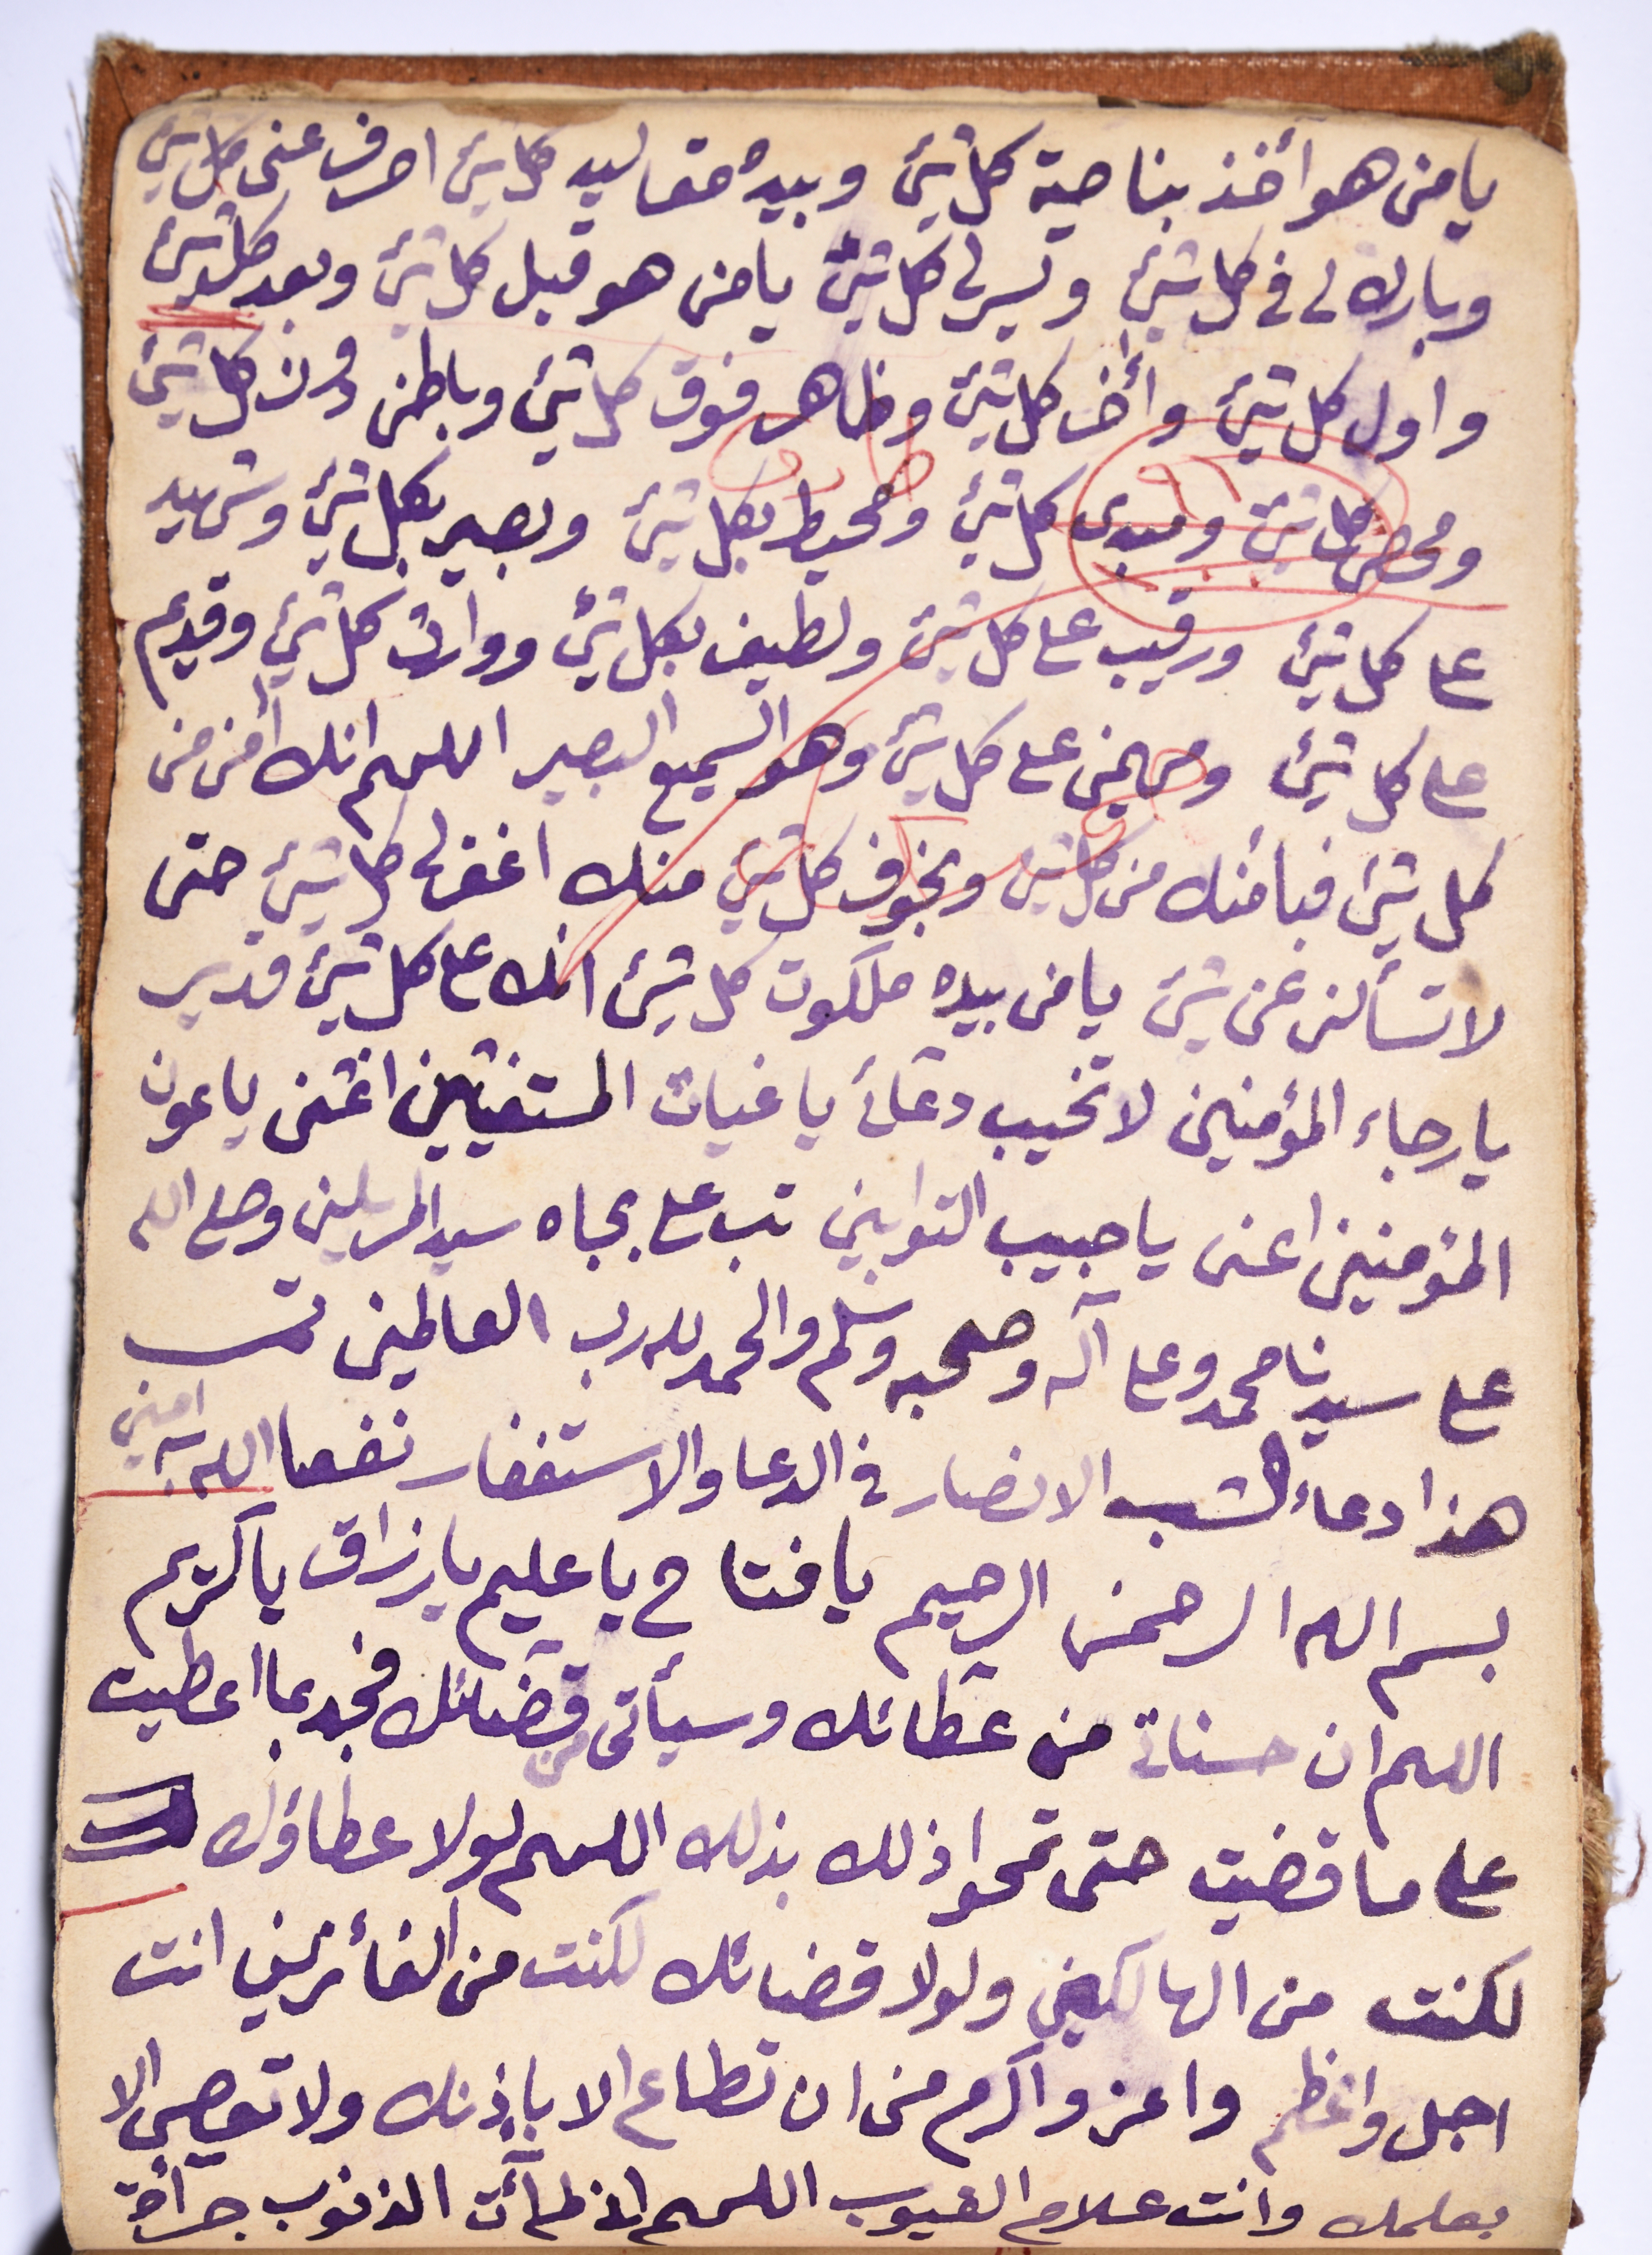 يا من هو أخذ بناصية كل شئ وبيده مقاليد كل شئ اصرف عنى كل شئ
وبارك لى فى كل شئ ويسر لى كل شئ يا من هو قبل كل شئ وبعد كل شئ
واول كل شئ وأخر كل شئ وظاهر فوق كل شئ وباطن دون كل شئ
ومحصى كل شئ ومبدى كل شئ ومحيط بكل شئ وبصير بكل شئ وشهيد
على كل شئ ورقيب على كل شئ ولطيف بكل شئ ووارث كل شئ وقديم
على كل شئ ومهيمن على كل شئ وهو السميع البصير اللهم انك أمن من
كل شئ فبأمنك من كل شئ وبخوف كل شئ منك اغفر لى كل شئ حتى
لا تسألنى عن شئ يا من بيده ملكوت كل شئ انك على كل شئ قدير
يا رجاء المؤمنين لا تخيب دعائ يا غياث المستغيثين اغثنى يا عون
المؤمنين اعنى يا حبيب التوابين تب على بجاه سيد المرسلين وصلى الله
على سيدنا محمد وعلى آله وصحبه وسلم والحمد لله رب العالمين تمت
هذا دعاء الانصار فى الدعا والاستغفار نفعنا الله به امين
بسم الله الرحمن الرحيم يا فتاح يا عليم يا رزاق يا كريم
اللهم ان حسناتى من عطائك وسيأتى من قضائك فجد بما اعطيت
على ما قضيت حتى تمحوا ذلك بذلك اللهم لولا عطاؤك
لكنت من الهالكين ولولا قضائك لكنت من الفائزين انت
اجل واعظم واعز واكرم من ان تطاع الا بإذنك ولا تعصى الا
بعلمك وانت علام الغيوب اللهم الذنوب جرأة